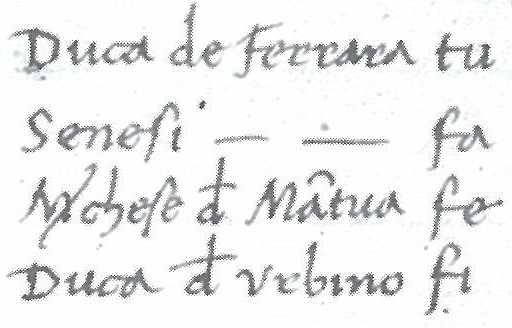 Duca de Ferrara tu
Senesi — — fa
Mchese đ Mâtua fe
Duca đ Vrbino fi